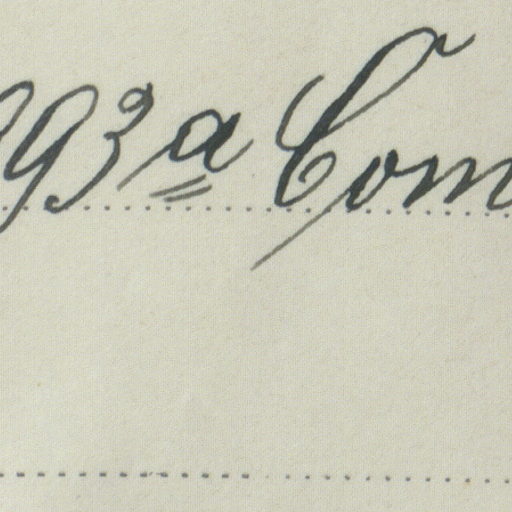 993ª Com